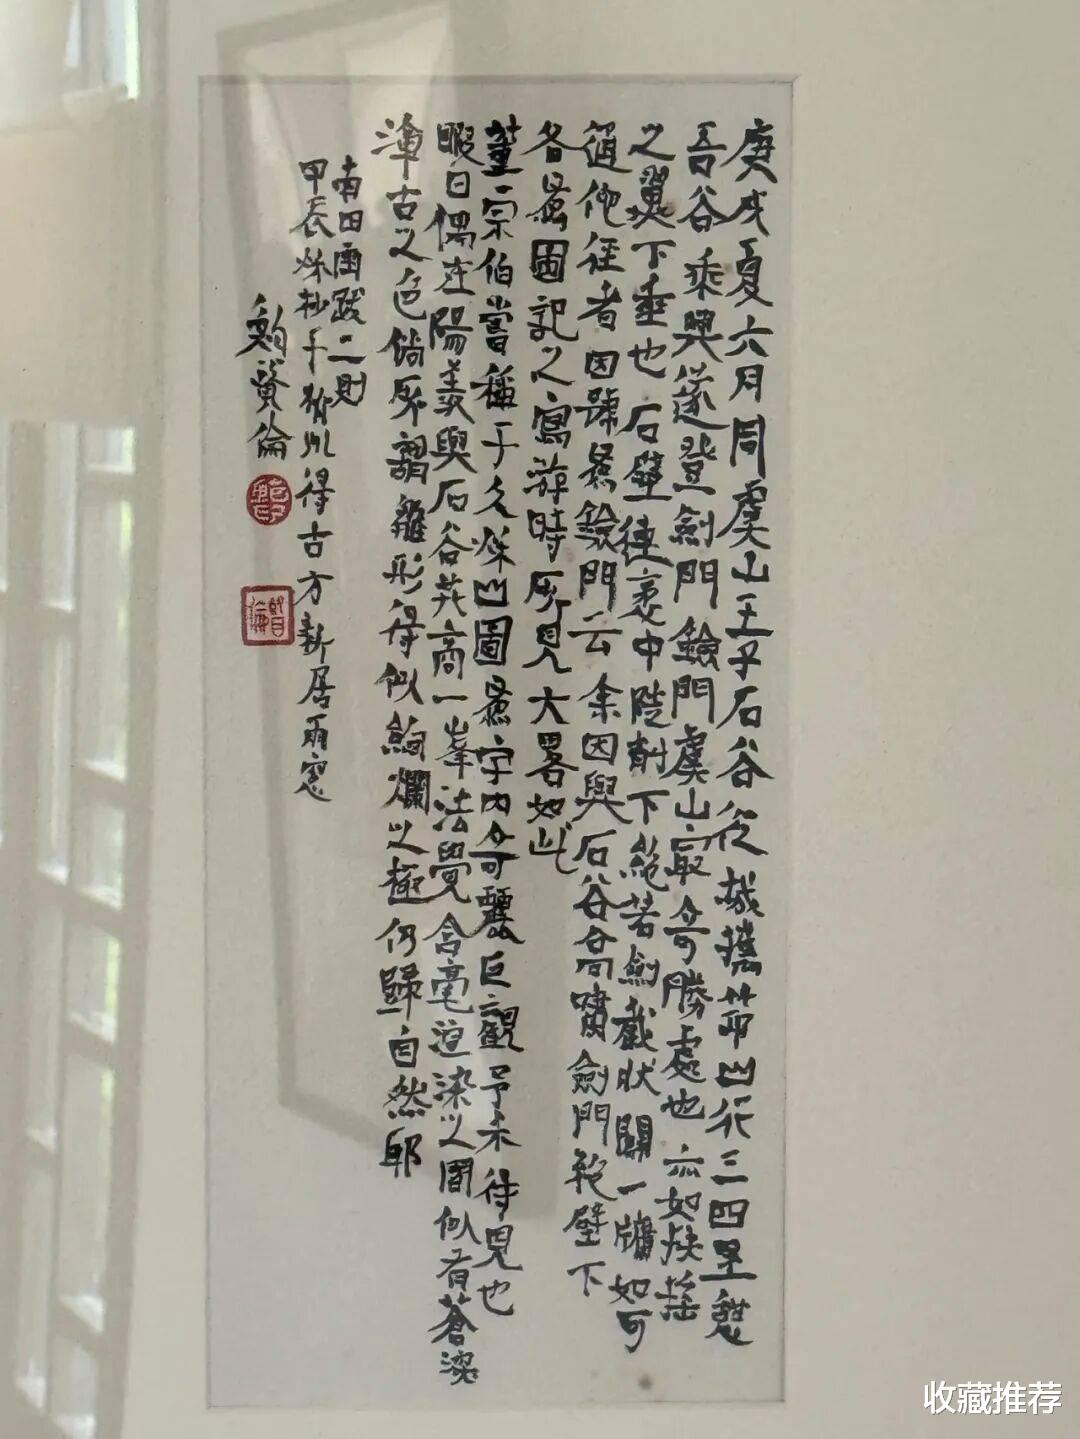 庚戌夏六月同虞山王子石谷從城攜笻山行三四里憩
吾谷乘興遂登劍門劍門虞山最奇勝處也亦如扶搖
之翼下垂也石壁連袤中陡削下絕若劍截狀闢一牖如可
通他徑者因號為劍門云余因與石谷高嘯劍門絕壁下
各為圖記之寫游時所見大畧如此
董宗伯嘗稱子久秌山圖為宇内奇麗巨觀予未得見也
暇日偶在陽羨與石谷共商一峯法覺含毫渲染之間似有蒼深
渾古之色倘所謂離形得似絢爛之極仍歸自然耶
南田畫跋二則
甲辰秌抄于 得古方新居雨窗
鮑賢倫
鮑印
賢倫
收藏推荐